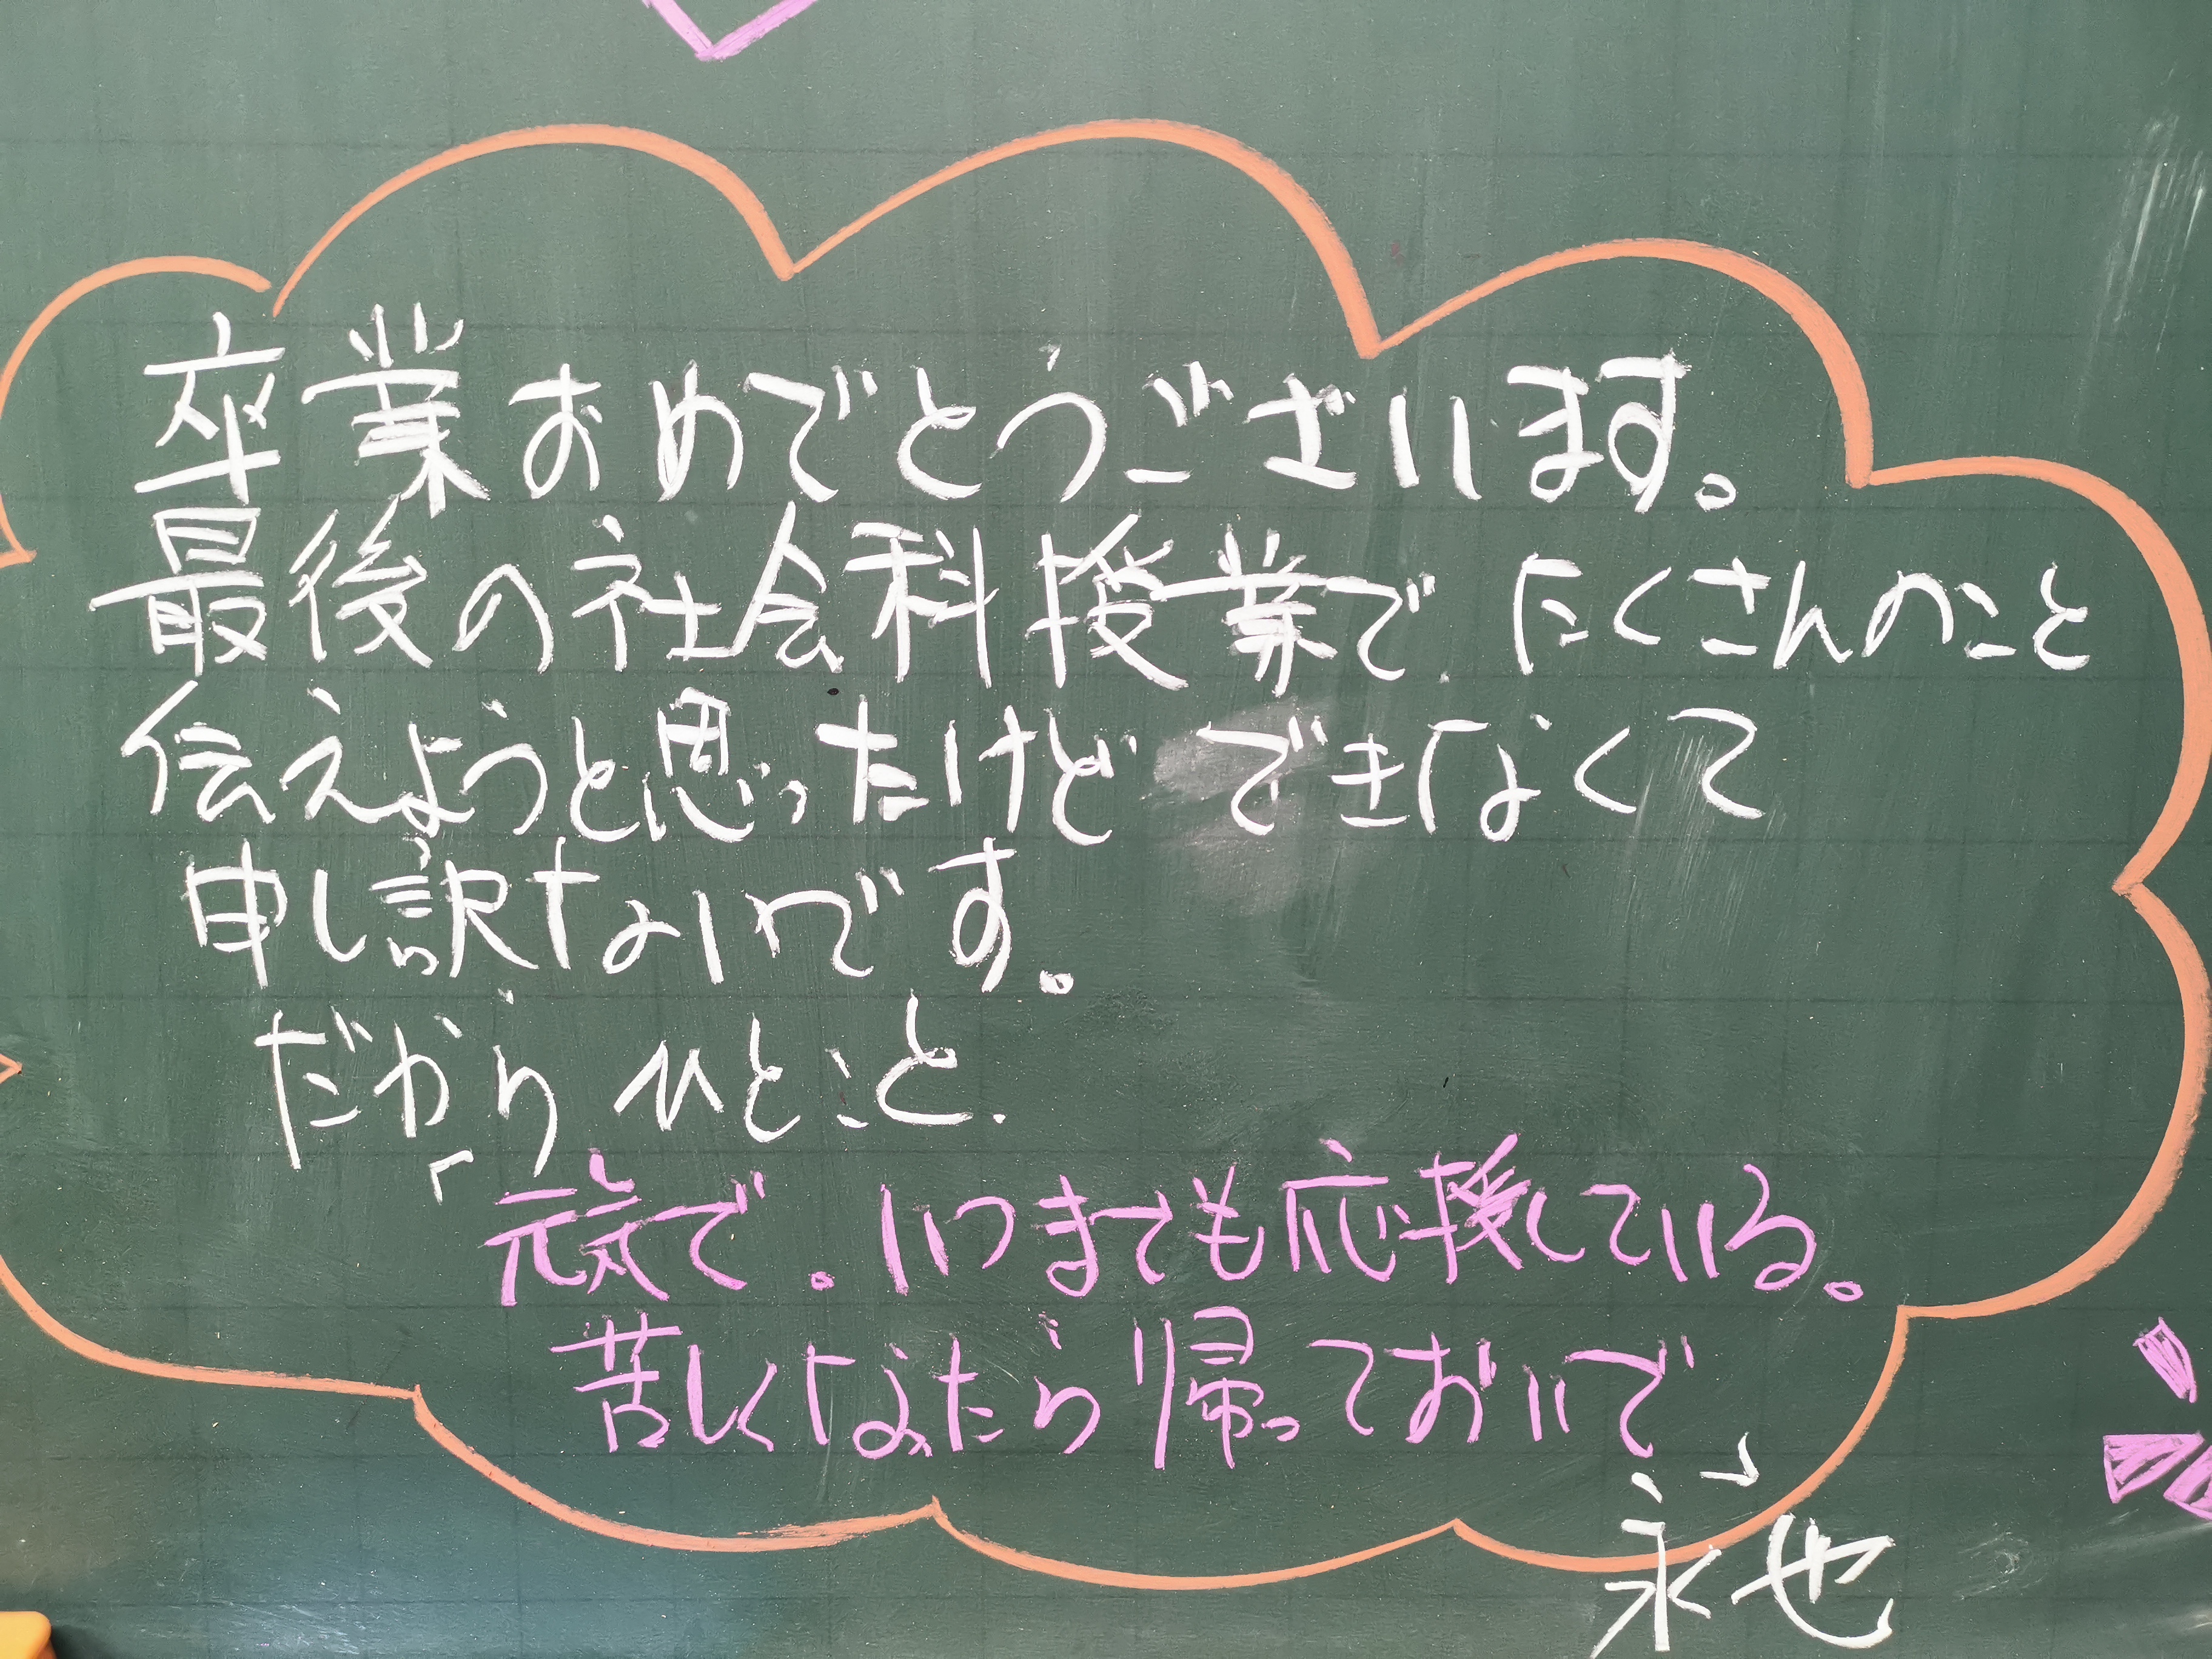 卒業おめでとうございます。
最後の社会科授業で、たくさんのこと
伝えようと思ったけど できなくて
申し訳ないです。
だから ひとこと、
「元気で。いつまでも応援している。
苦しくなったら帰っておいで」
永也